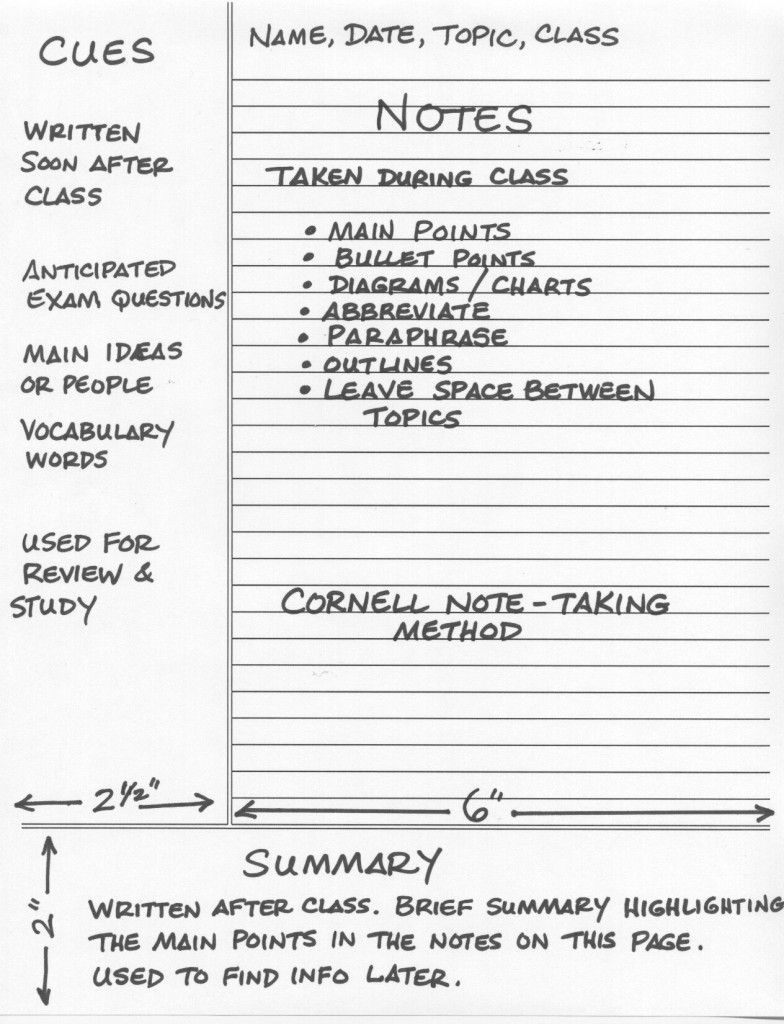 CUES
WRITTEN
SOON AFTER
CLASS
ANTICIPATED
EXAM QUESTIONS
MAIN IDEAS
OR PEOPLE
VOCABULARY
WORDS
USED FOR
REVIEW &
STUDY
2 1/2"
NAME, DATE, TOPIC, CLASS
NOTES
TAKEN DURING CLASS
• MAIN POINTS
• BULLET POINTS
• DIAGRAMS / CHARTS
• ABBREVIATE
• PARAPHRASE
• OUTLINES
• LEAVE SPACE BETWEEN
TOPICS
CORNELL NOTE-TAKING
METHOD
6"
2"
SUMMARY
WRITTEN AFTER CLASS. BRIEF SUMMARY HIGHLIGHTING
THE MAIN POINTS IN THE NOTES ON THIS PAGE.
USED TO FIND INFO LATER.